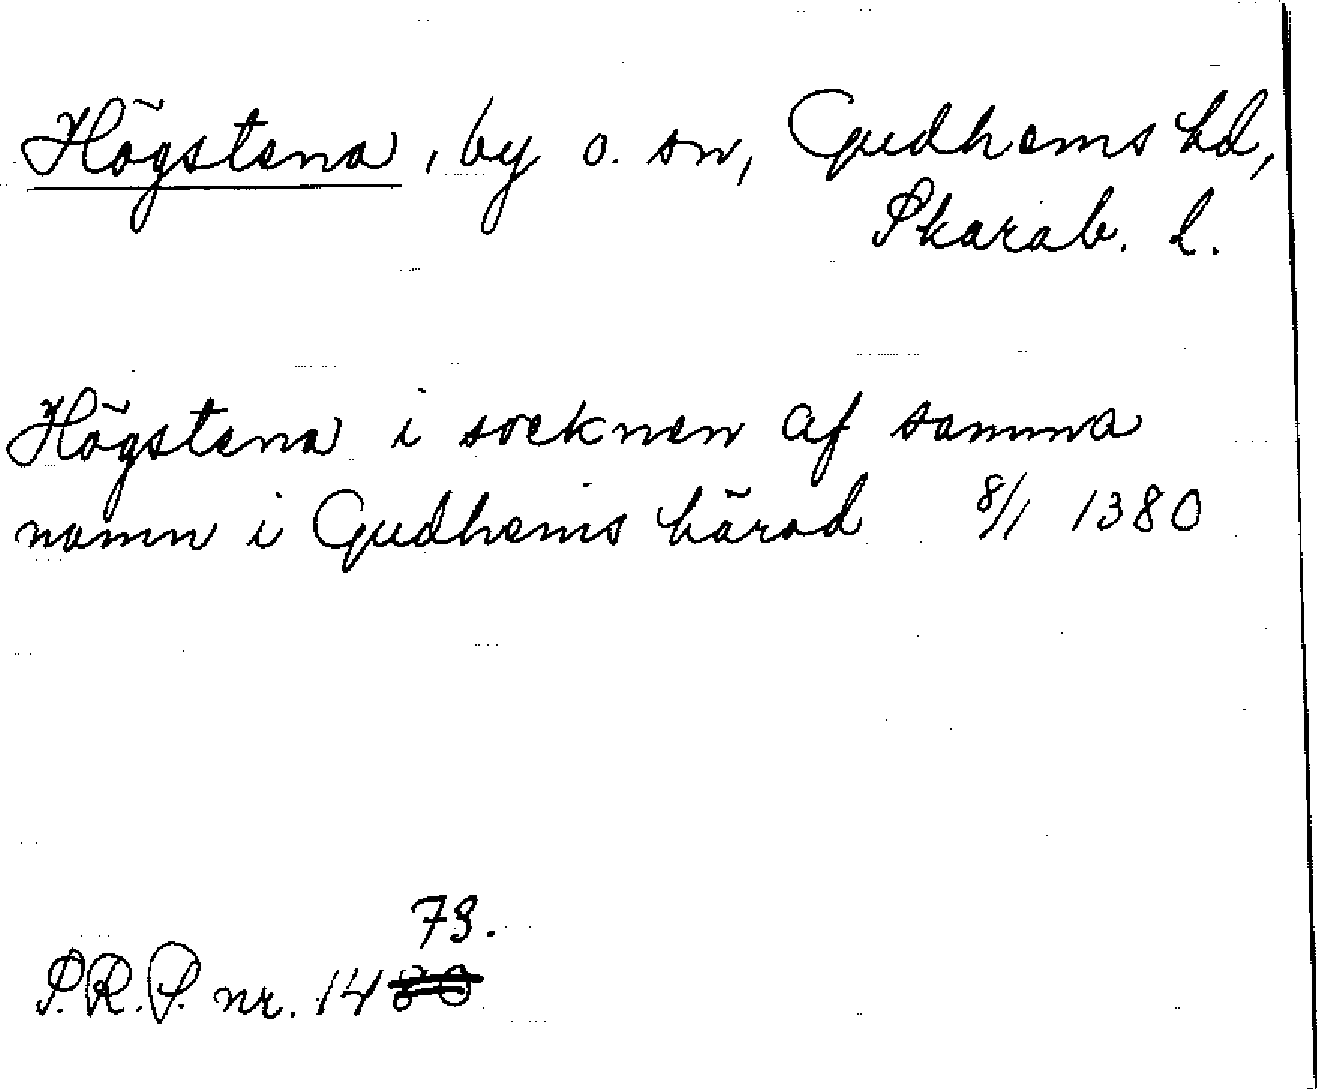 Högstena, by o. sn, Gudhems hd,
Skarab. l.
Högstena i socknen af samma
namn i Gudhems härad 8/1 1380
73.
S.R.P. nr. 1480